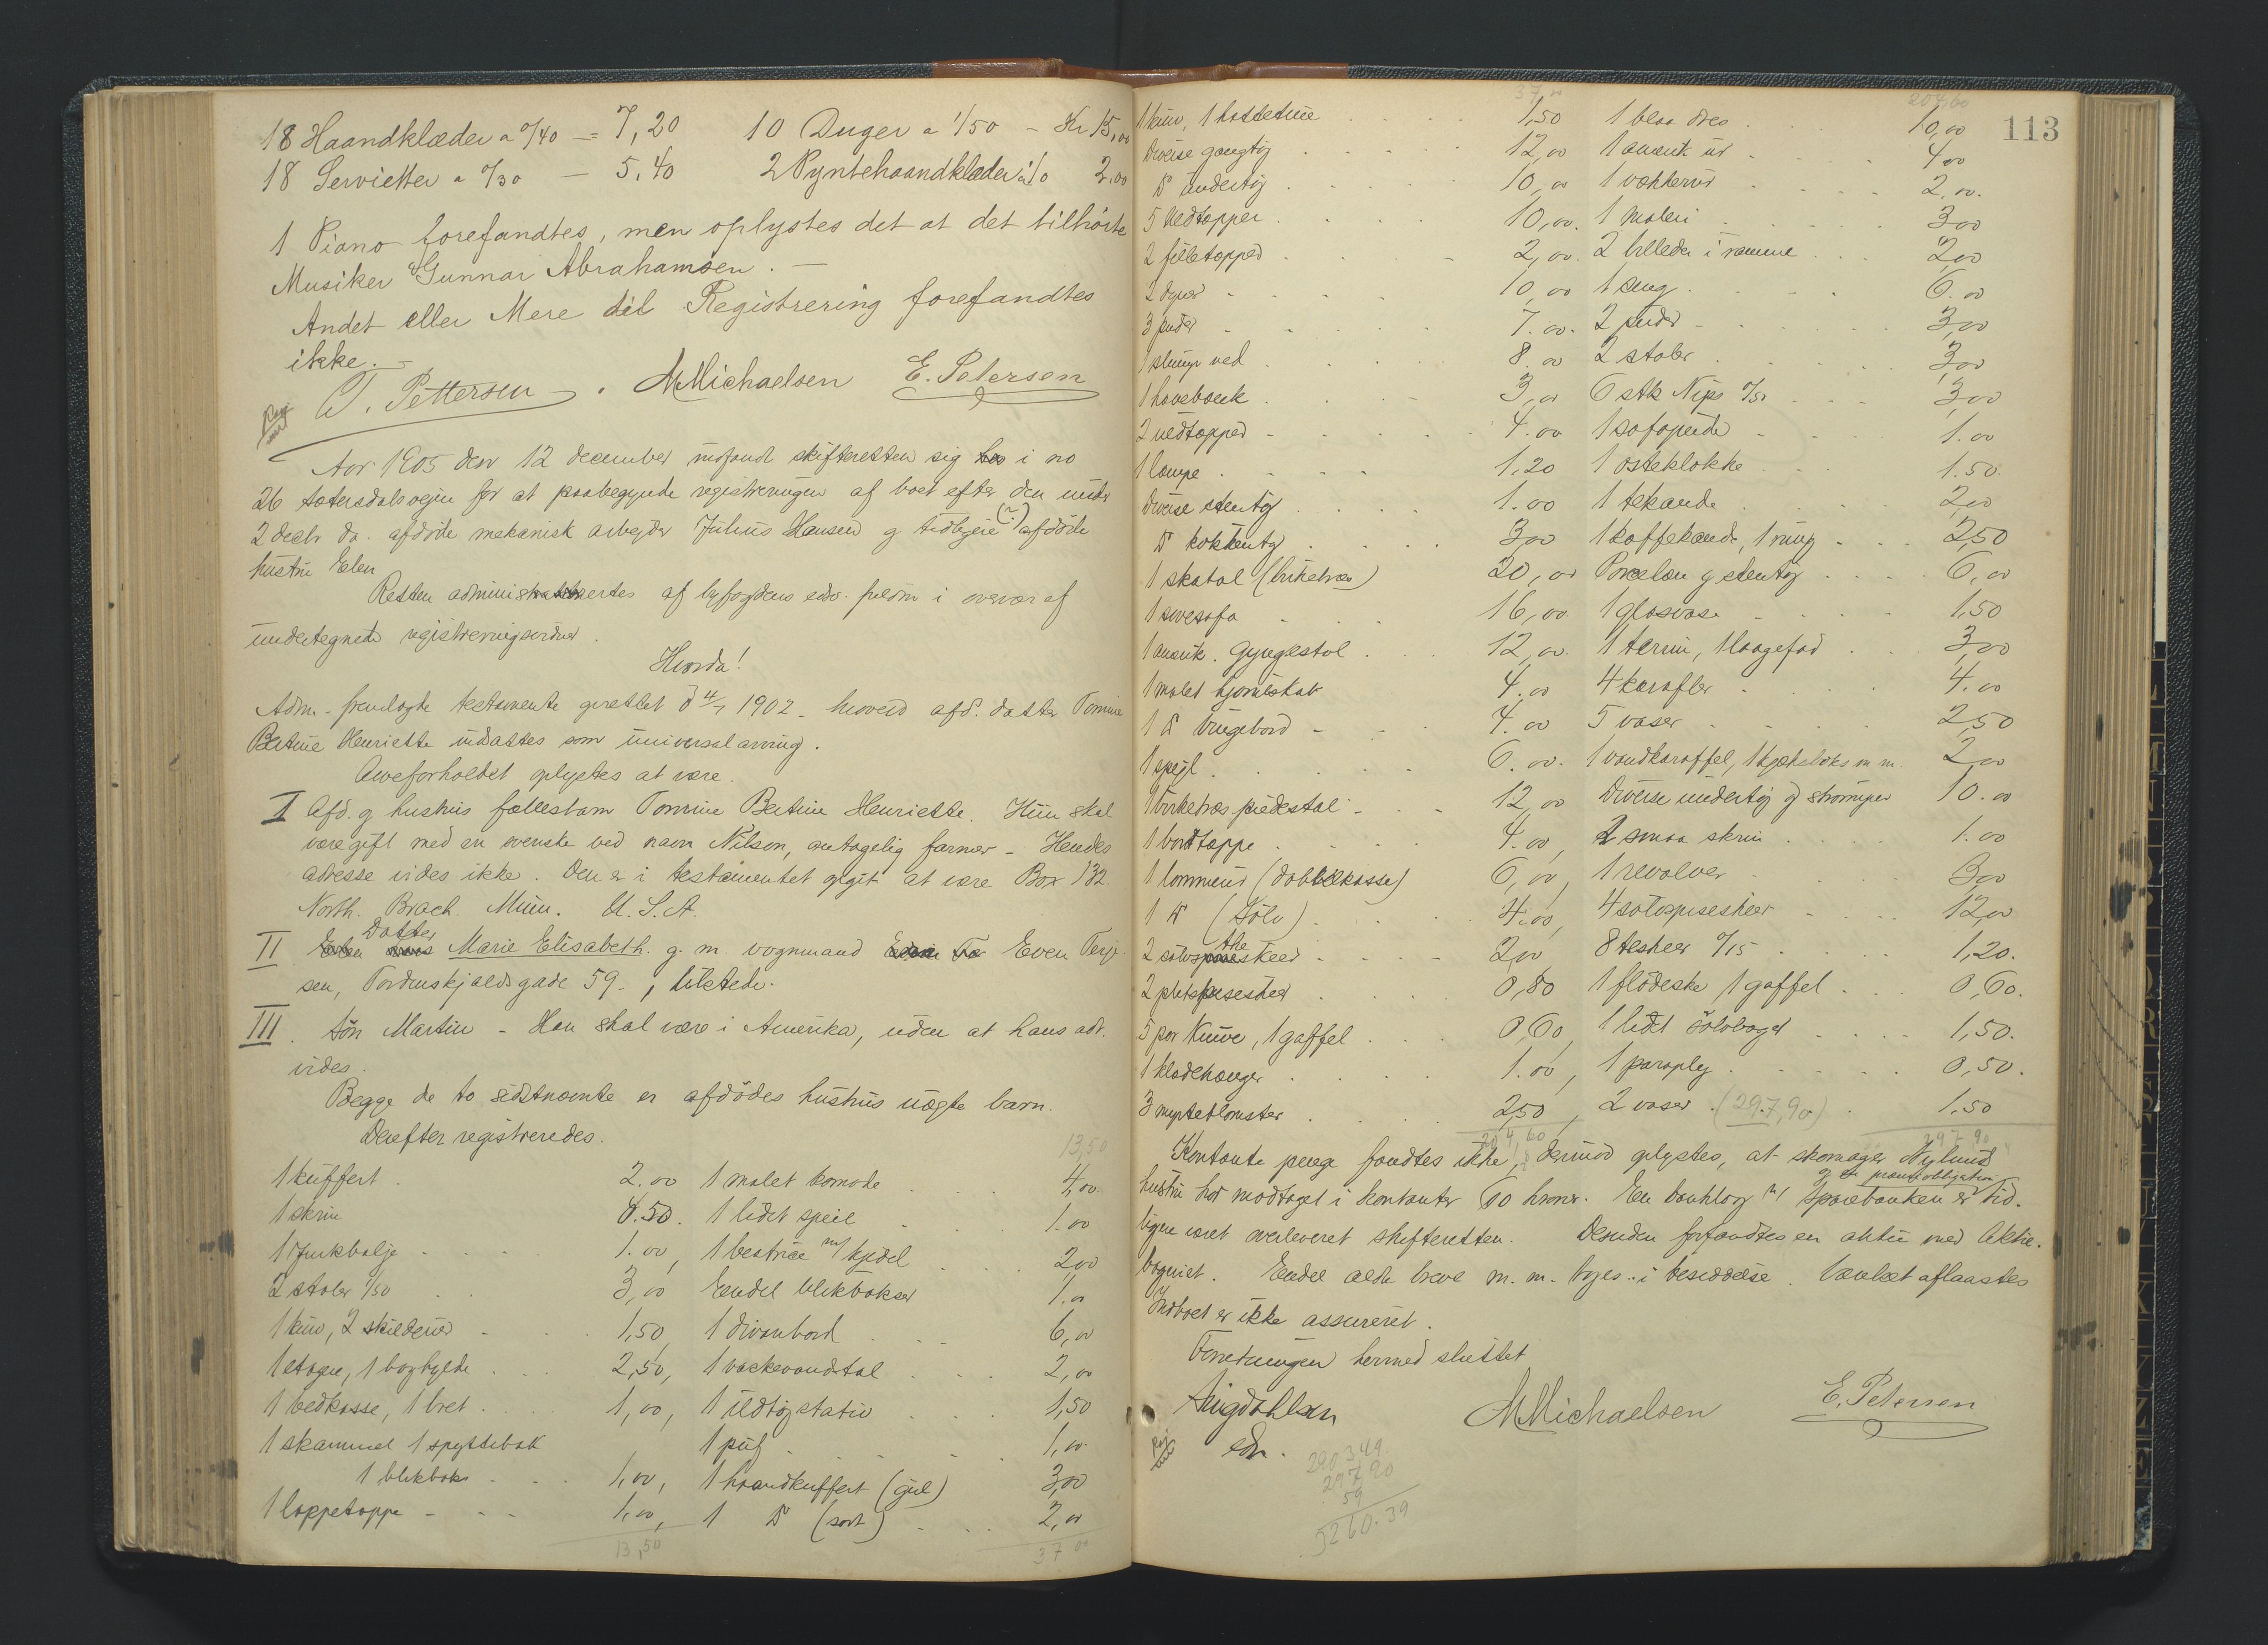 18 Haandklæder a 0/40 = 7,20 10 Duger a 1/50 - Kr 15,00
18 Servietter a 0/30 — 5,40 2 Pyntehaandklæder a 1/0 2,00
1 Piano forefandtes, men oplystes det at det tilhørte
Musiker Gunnar Abrahamsen. —
Andet eller Mere til Registrering forefandtes
ikke. —
T. Pettersen. M Michaelsen E. Petersen
Aar 1905 den 12 december indfandt skifteretten sig hos i no
26 Sætersdalsveien for at paabegynde registreringen af boet efter den under
2 decbr da. afdøde mekanisk arbejder Julius Hansen g tidligere afdøde
hustru Elen
Retten administrertes af byfogdens edsv. fuldm i overvær af
undertegnede registreringsvidner.
Hvorda!
Adm. fremlagte testamente oprettet d 4/7 1902 - hvorved afd. datter Tomine
Bertine Henriette indsættes som universalarving.
Arveforholdet oplystes at være.
I Afd. g hustrus fællesbarn Tomine Bertine Henriette. Hun skal
være gift med en svenske ved navn Nilson, antagelig farmer - Hendes
adresse vides ikke. Den er i testamentet opgit at være Box 132
North. Brach Minn. U.S.A.
II Datter Marie Elisabeth. g. m. vognmand Even Terj-
sen, Tordenskjoldsgade 59-, tilstede.
III. Søn Martin - Han skal være i Amerika, uden at hans adr.
vides.
Begge de to sidstnævnte er afdødes hustrus uægte barn.
Derefter registreredes.
13,50
1 kuffert . 2.00 1 malet komode . 4,00
1 skrin 0.50. 1 lidet speil 1.00
1 Junkbalje 1.00, 1 bestrie m/ kjedel 2,00
2 stoler 1/50 3,00 Endel blikbokser 1.00
1 kurv, 2 skilderier 1,50, 1 divanbord 6,00
1 etagere, 1 boghylde 2,50, 1 vaskevandstol 2,00
1 vedkasse, 1 bret 1,00, 1 ildtøjstativ 1,50
1 skammel 1 spyttebak 1 puf 1,00
1 blikboks 1,00, 1 haandkuffert (gul) 3,00
1 loppetæppe 1,00, 1 do (sort) 2,00
13,50 37 00
113
37,00 204,60
1 kurv, 1,50 1 blaa dres 10,00
Diverse gangtøj 12,00 1 amerik ur 4,00
do undertøj 10,00 1 vækkerur 2,00.
5 uldtæpper 10,00. 1 maleri 3,00
2 filletæpper 2,00. 2 billeder i ramme 2,00
2 dyner 10,00 1 seng 6.00
3 puder 7.00. 2 puder 3,00
1 slump ved 8.00 2 stoler 3,00
1 høvebænk 3,00 6 stk Nips 0/50 3,00
2 uldtæpper 4.00 1 sofapude 1.00
1 lampe 1,20 1 osteklokke 1.50.
Diverse stentøj 1.00 1 tekande 2,00
do køkkentøj 3,00 1 kaffekande, 1 mug 2,50
1 skatol (birketræ) 20,00 Porcelæn g stentøj 6,00
1 sovesofa 16,00 1 glasvase 1,50
1 amerik. Gyngestol 12,00. 1 terrin, 1 kagefad 3,00
1 malet hjørneskab 4.00 4 karafler 4.00
1 do Vingebord 4.00 5 vaser 2,50
1 spejl 6.00. 1 vandkaraffel, 1 kjeksboks m m. 2,00
1 birketræs piedestal 12,00 Diverse undertøj g strømper 10.00
1 bordtæppe 4.00, 2 smaa skrin 1.00
1 lommeur (dobbelkasse) 6,00, 1 revolver 3,00
1 do (sølv) 4.00, 4 sølvspiseskeer 12,00
2 sølv the skeer 2,00 8 teskeer 0/15 1,20.
2 pletspiseskeer 0,80 1 flødeske 1 gaffel 0,60.
5 par Knive, 1 gaffel 0,60, 1 lidet sølvbæger 1,50.
1 klædehænger 1.00, 1 paraply 0,50.
3 myrteblomster 2,50, 2 vaser (297,90) 1,50
204,60 297 90
Kontante penge fandtes ikke, derimod oplystes, at skomager Nylund
g et prioritetsobligation
hustru har modtaget i kontanter 60 kroner. En bankbog m/ sparebanken er tid-
ligere været overleveret skifteretten. Desuden forfandtes en aktie med Aktie-
bryggeriet. Endel ældre breve m. m. toges i besiddelse. Værelset aflaastes
Indboet er ikke assureret.
Forretningen hermed sluttet
M Michaelsen E. Petersen
edsv.
2903,49
297 90
59
3260.39